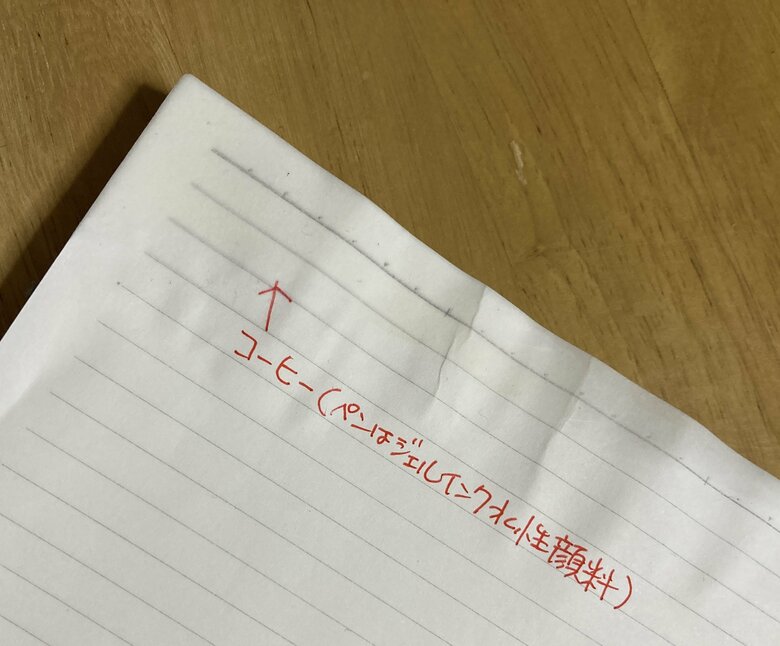 コーヒー(ペンはジェルインク水性顔料)